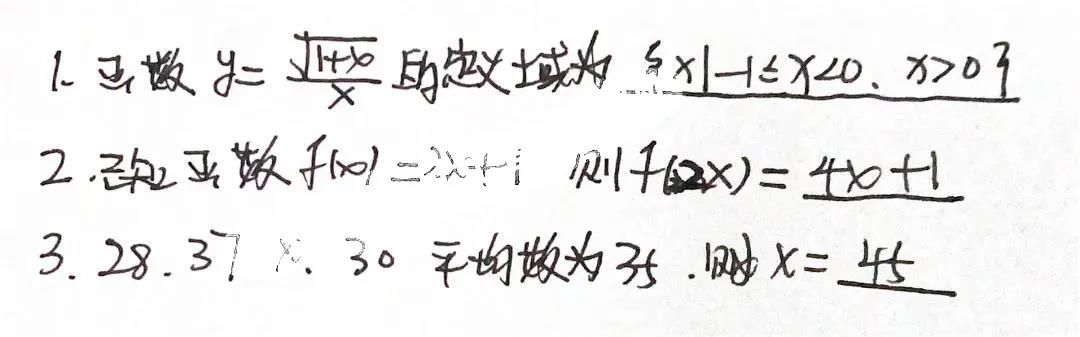 1. 函数 y=√(1+x)/x 的定义域为 {x|-1≤x<0. x>0}
2. 已知函数f(x)=2x+1 则f(2x)=4x+1
3. 28. 37 x. 30 平均数为35. 则 x=45